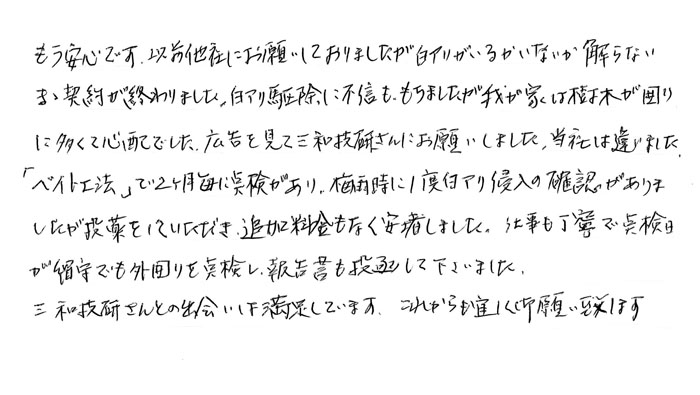 もう安心です。以前他社にお願いしておりましたが白アリがいるかいないか解らない
まゝ契約が終わりました。白アリ駆除に不信も、もちましたが我が家は樹木が囲り
に多くて心配でした。広告を見て三和技研さんにお願いしました。当社は違いました。
「ベイト工法」で2ヶ月毎に点検があり。梅雨時に1度白アリ侵入の確認がありま
したが投薬をしていただき、追加料金もなく安堵しました。仕事も丁寧で点検日
が留守でも外囲りを点検し、報告書も投函して下さいました。
三和技研さんとの出会いは満足しています。これからも宜しく御願い致します